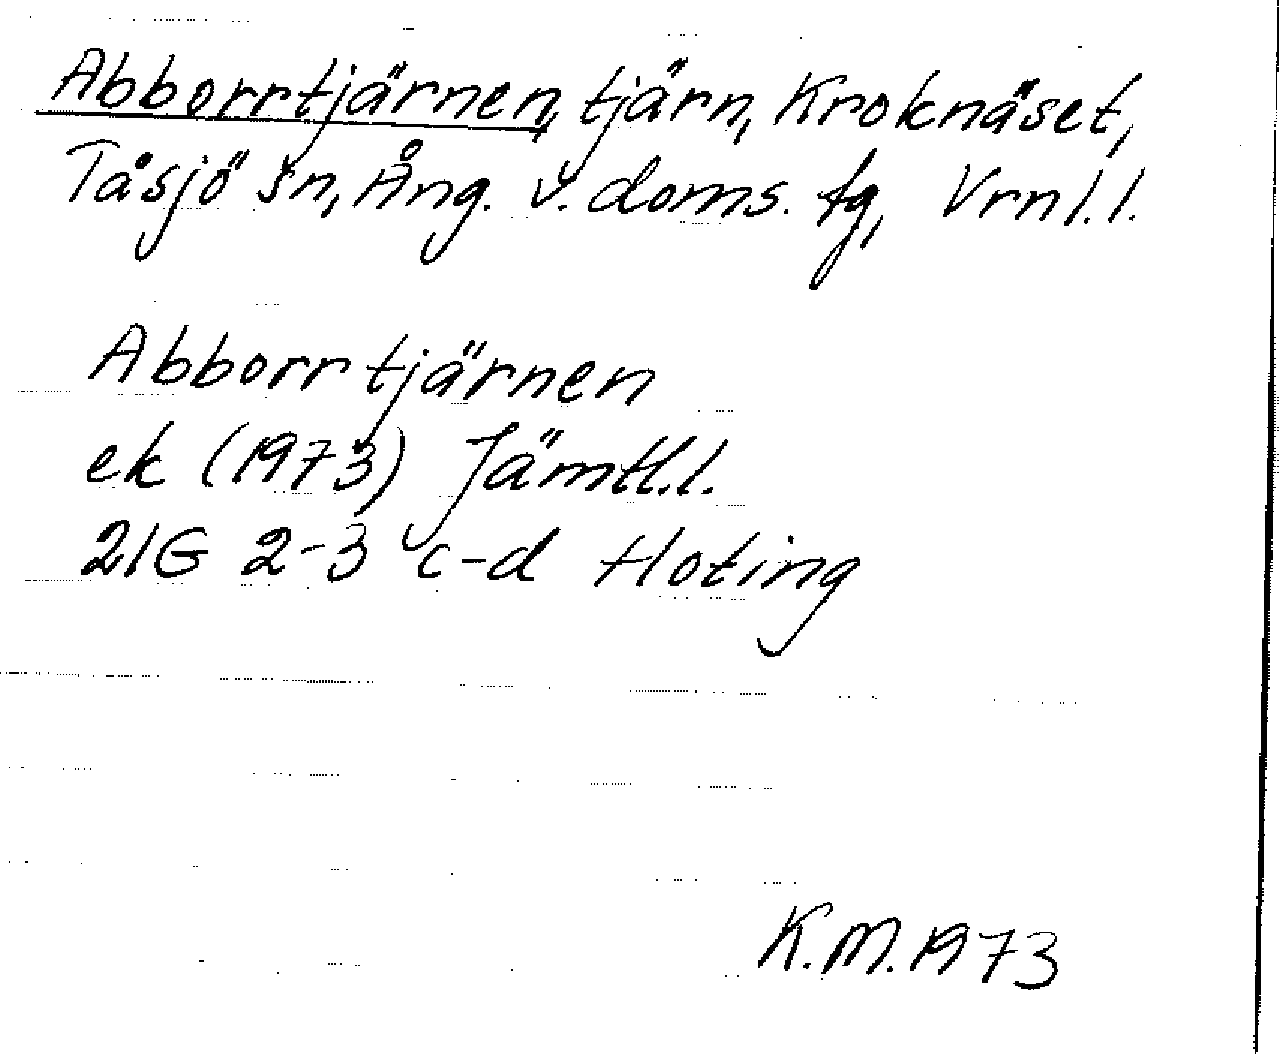 Abborrtjärnen, tjärn, Kroknäset,
Tåsjö sn, Ång. v. doms. tg, Vrnl.l.
Abborrtjärnen
ek (1973) Jämtl.l.
21G 2-3 c-d Hoting
K.M. 1973